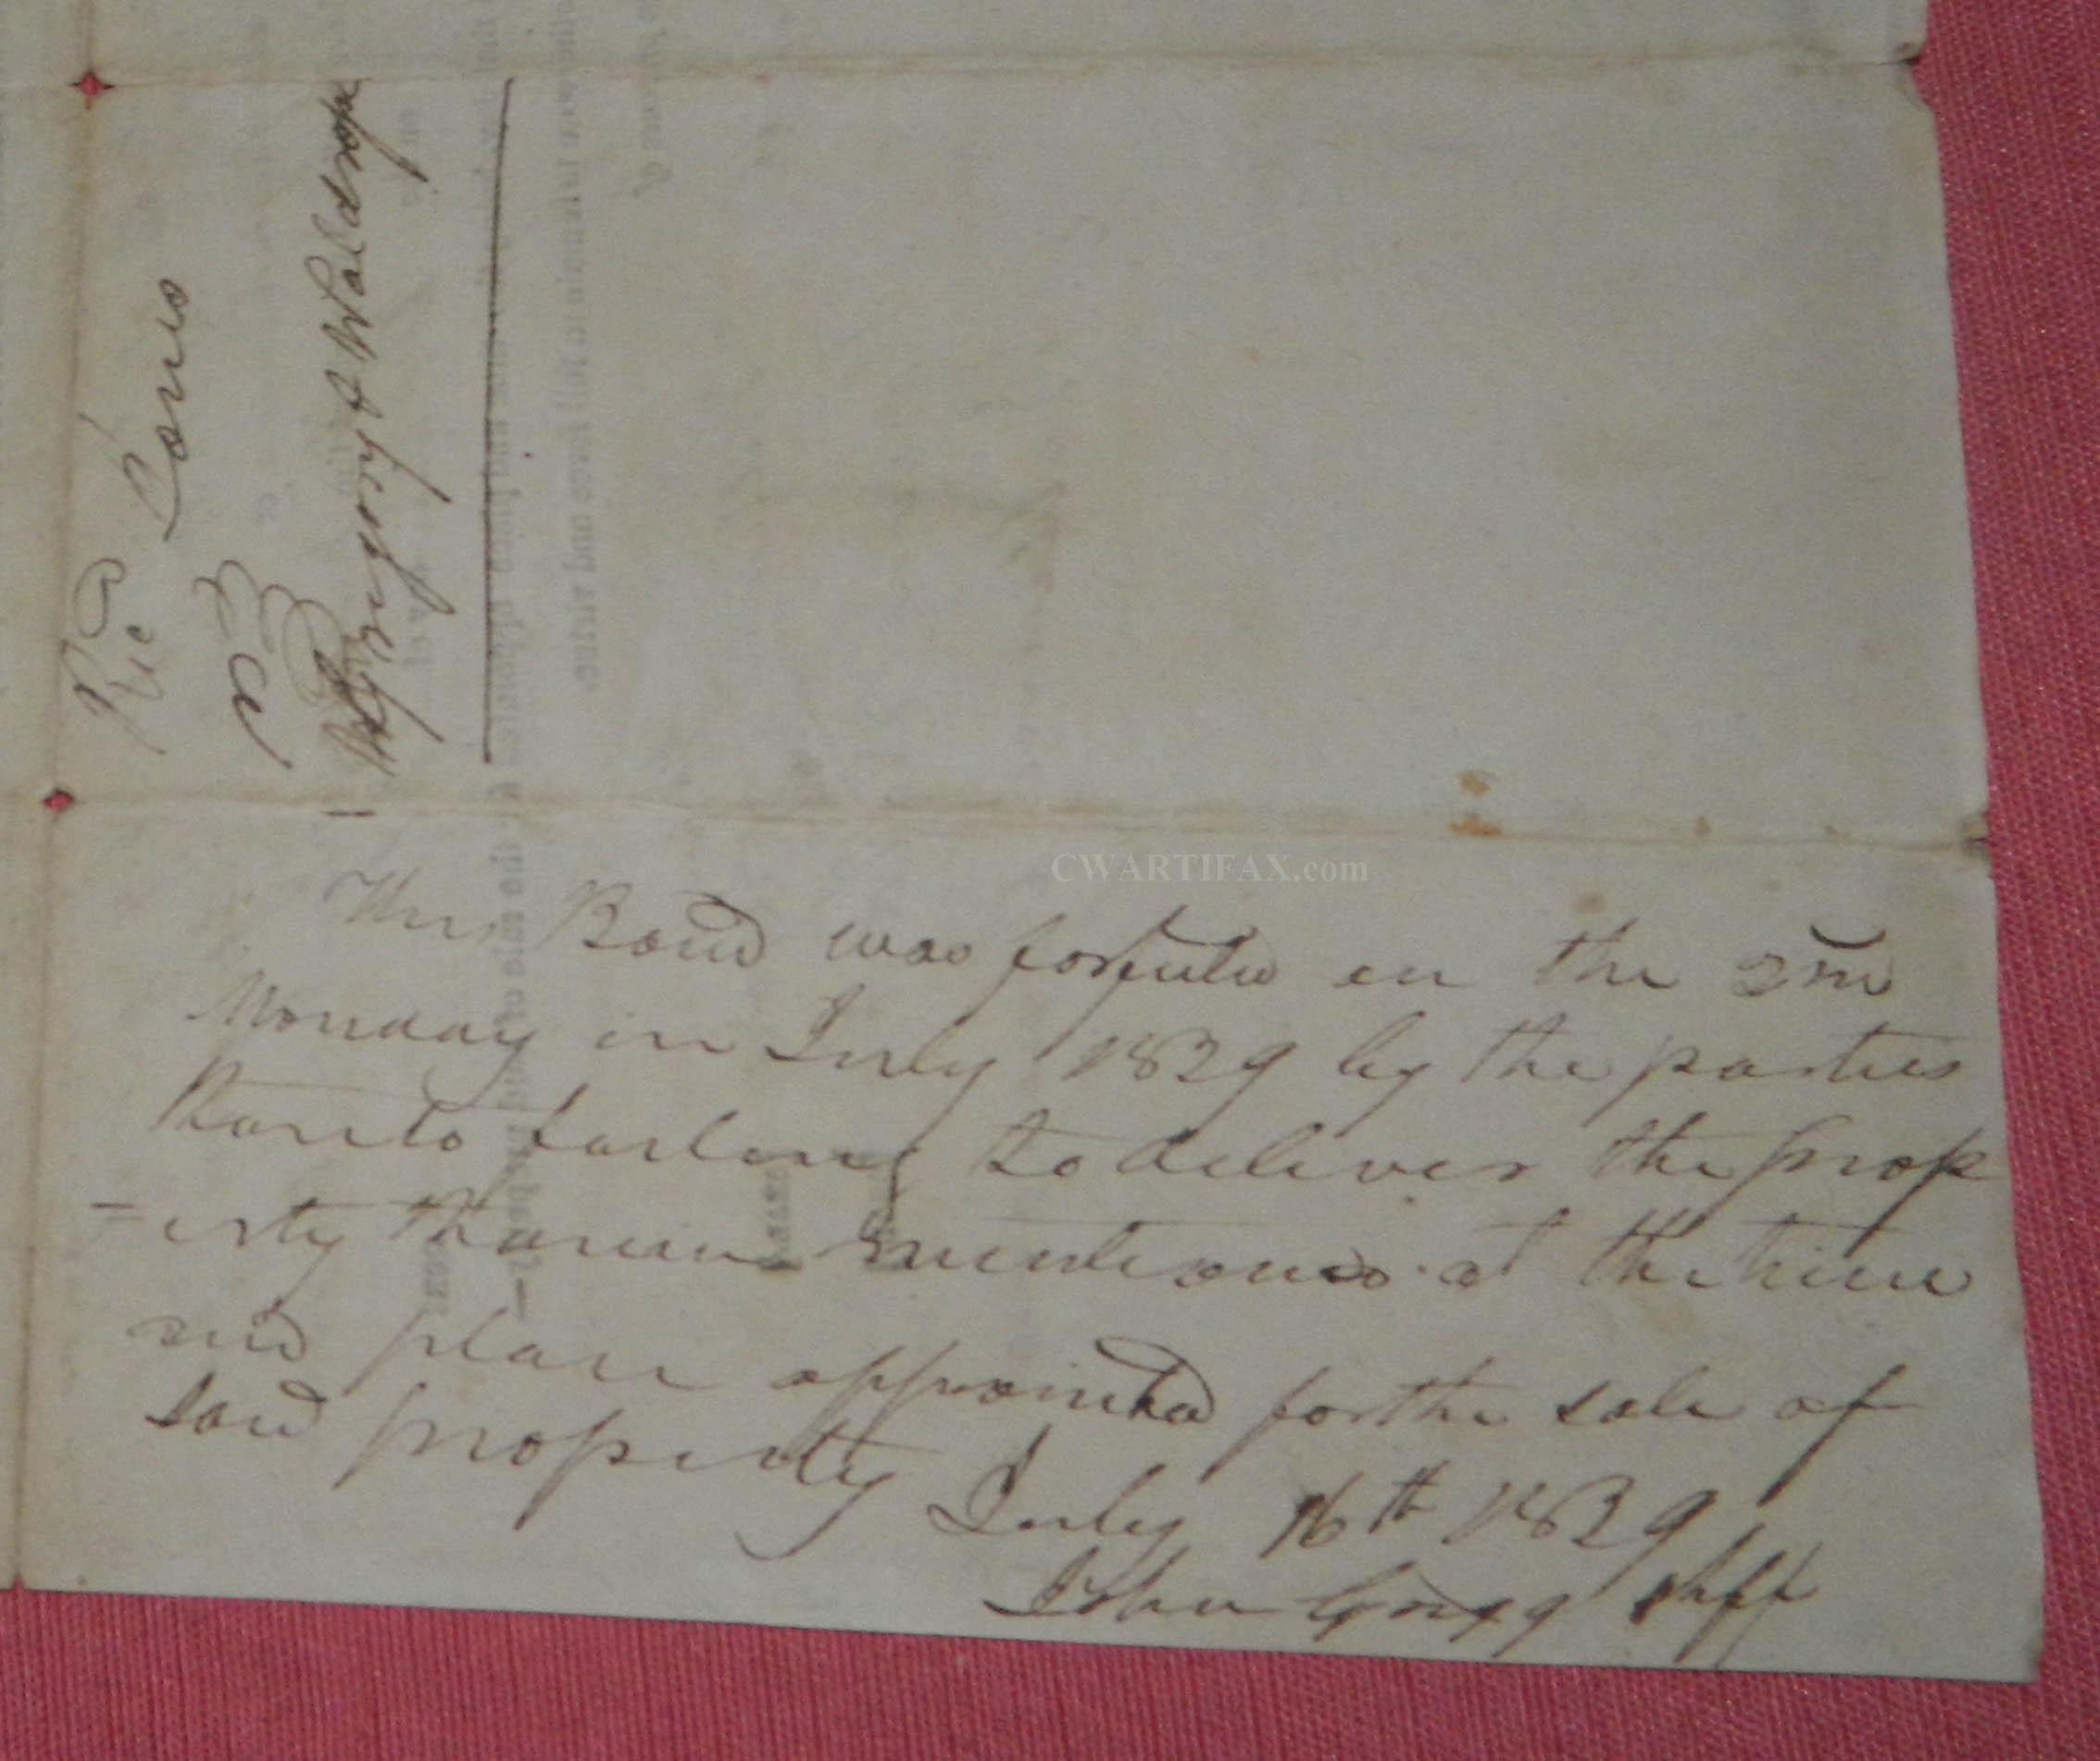 Ricd
vs
Gregory & Waldrop
CWARTIFAX.com
This Bond was forfeited on the 2nd
Monday in July 1829 by the parties
thereto failing to deliver the prop
=erty therein mentioned at the time
and place appointed for the sale of
said property
July 16th 1829
John Gregg shff